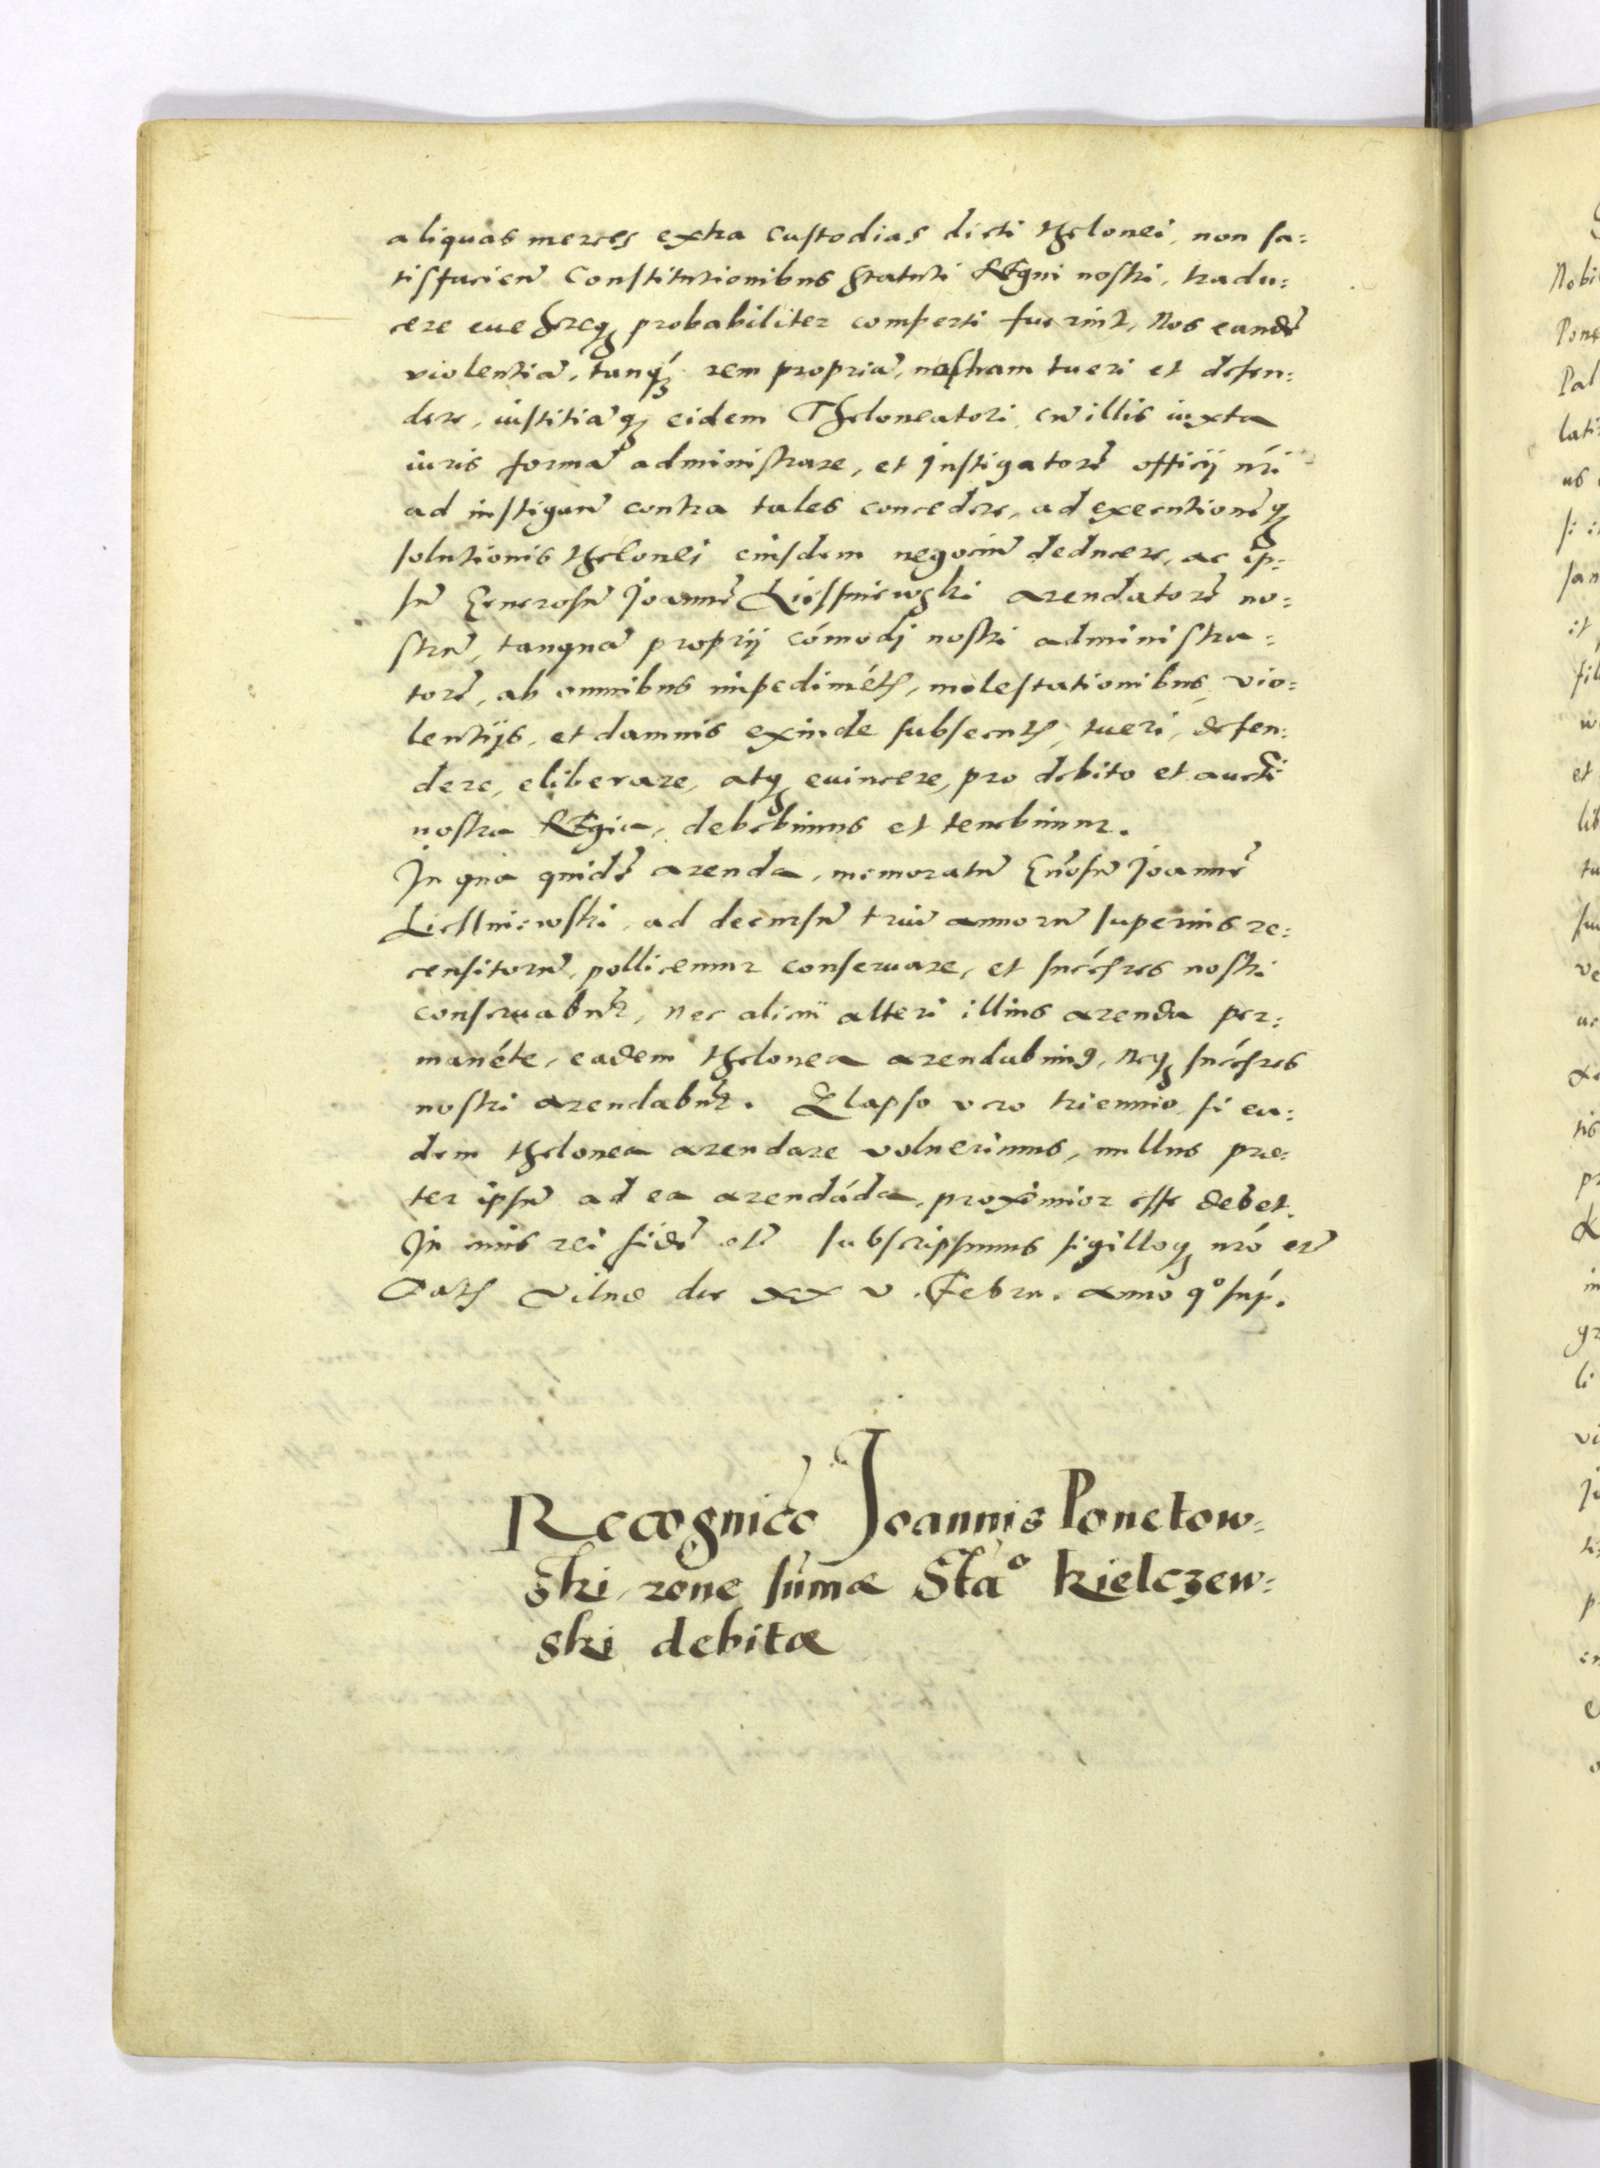 aliquas merces extra custodias dicti thelonei, non sa:
tisfacień Constitutionibus Statuti Regni nostri, tradu:
cere euehereq₃ probabiliter comperti fuerint, Nos eandē
violentiā, tanq₃ rem propriā, nostram tueri et defen:
dere, iustitiāq₃ eidem Theloneatori, cū illis iuxta
iuris formā administrare, et Instigatorē officij nr̃i
ad instigan̄ contra tales concedere, ad executionēq₃
solutionis thelonei eiusdem negociū deducere, ac ip:
sū Generosū Joannē Liessniewski arendatorē no:
strū, tanquā proprij cōmodj nostri administra:
torē, ab omnibus impedimētis, molestationibus, vio:
lentijs, et damnis exinde subsecutis, tueri, defen:
dere, eliberare, atq₃ euincere, pro debito et aucti
nostra Regia, debebimus et tenebimur.
In qua quidē arenda, memoratū Gñosū Joannē
Liessniewski, ad decursū triū annorū superius re:
censitorū, pollicemur conseruare, et succēsores nostri
conseruabūt, nec alicui alteri illius arenda per:
manēte, eadem thelonea arendabim9, neq₃ succēsores
nostri arendabūt. Elapso vero triennio, si ea:
dem thelonea arendare voluerimus, nullus pre:
ter ipsū ad ea arendāda, proximior esse debet.
In cuius rei fidē etc̃ subscripsimus sigilloq₃ nrō etc̃
Datis Vilnę die XX V. Febru. anno q° sup.
Recognicō Joannis Ponetow:
ski, rōne sūmæ Sta° Kielczew:
ski debitæ